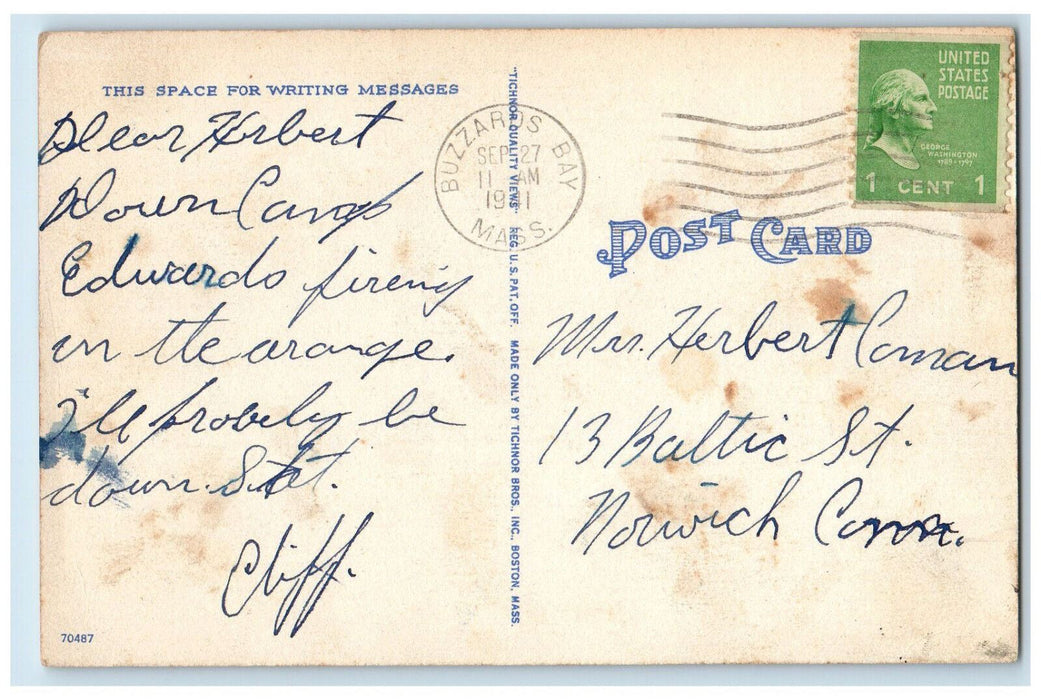 THIS SPACE FOR WRITING MESSAGES
Dear Herbert
Down Camp
Edwards fireing
on the arange.
I'll probely be
down Sat.
Cliff.
70487
"TICHNOR QUALITY VIEWS" REG. U.S. PAT. OFF. MADE ONLY BY TICHNOR BROS., INC., BOSTON, MASS.
BUZZARDS BAY
SEP 27
11 AM
1941
MASS.
UNITED
STATES
POSTAGE
GEORGE
WASHINGTON
1789-1797
1 CENT 1
POST CARD
Mrs. Herbert Coman
13 Baltic St.
Norwich Conn.